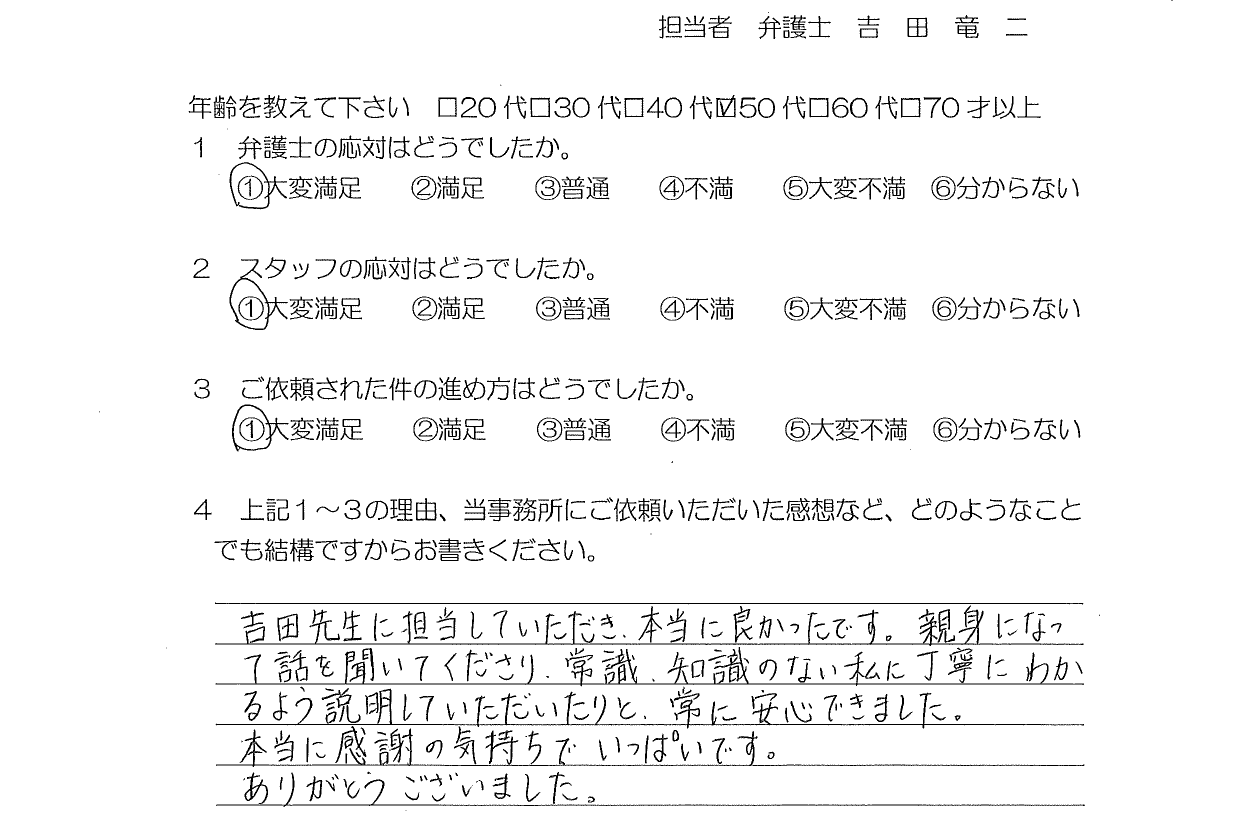 担当者　弁護士　吉　田　竜　二
年齢を教えて下さい　□20代□30代□40代☑50代□60代□70才以上
１　弁護士の応対はどうでしたか。
①大変満足　②満足　③普通　④不満　⑤大変不満　⑥分からない
２　スタッフの応対はどうでしたか。
①大変満足　②満足　③普通　④不満　⑤大変不満　⑥分からない
３　ご依頼された件の進め方はどうでしたか。
①大変満足　②満足　③普通　④不満　⑤大変不満　⑥分からない
４　上記１～３の理由、当事務所にご依頼いただいた感想など、どのようなこと
でも結構ですからお書きください。
吉田先生に担当していただき、本当に良かったです。親身になっ
て話を聞いてくださり、常識、知識のない私に丁寧にわか
るよう説明していただいたりと、常に安心できました。
本当に感謝の気持ちでいっぱいです。
ありがとうございました。